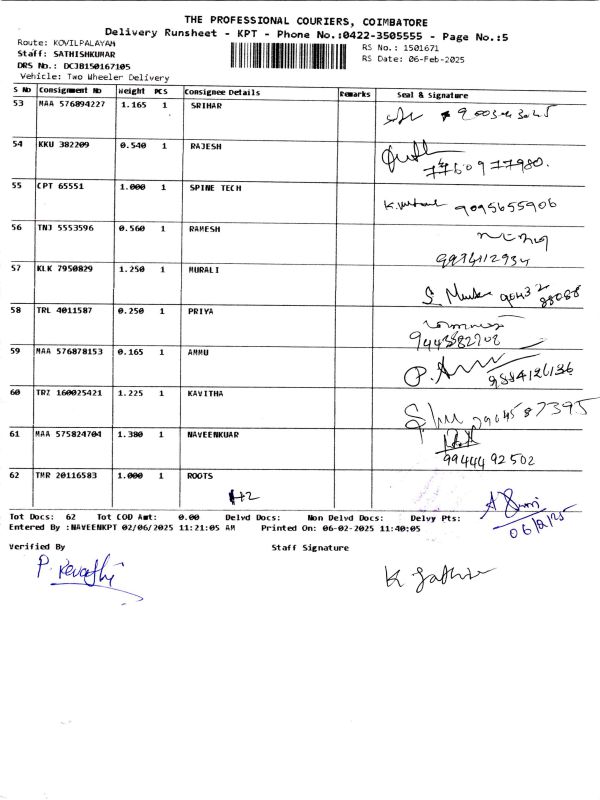 THE PROFESSIONAL COURIERS, COIMBATORE
Delivery Runsheet - KPT - Phone No.:0422-3505555 - Page No.:5
Route: KOVILPALAYAM
Staff: SATHISHKUMAR
DRS No.: DCJB150167105
Vehicle: Two Wheeler Delivery
RS No.: 1501671
RS Date: 06-Feb-2025
S No Consignment No Weight PCS Consignee Details Remarks Seal & Signature
53 MAA 576894227 1.165 1 SRIHAR
54 KKU 382209 0.540 1 RAJESH 7760977980.
55 CPT 65551 1.000 1 SPINE TECH 9095655906
56 TNJ 5553596 0.560 1 RAMESH 9934112934
57 KLK 7950829 1.250 1 MURALI
58 TRL 4011587 0.250 1 PRIYA
59 MAA 576878153 0.165 1 AMMU 9884126136
60 TRZ 160025421 1.225 1 KAVITHA
61 MAA 575824704 1.380 1 NAVEENKUAR 9944492502
62 TMR 20116583 1.000 1 ROOTS
Tot Docs: 62 Tot COD Amt: 0.00 Delvd Docs: Non Delvd Docs: Delvy Pts:
06/02/25
Entered By :NAVEENKPT 02/06/2025 11:21:05 AM Printed On: 06-02-2025 11:40:05
Verified By Staff Signature
P. Revathi